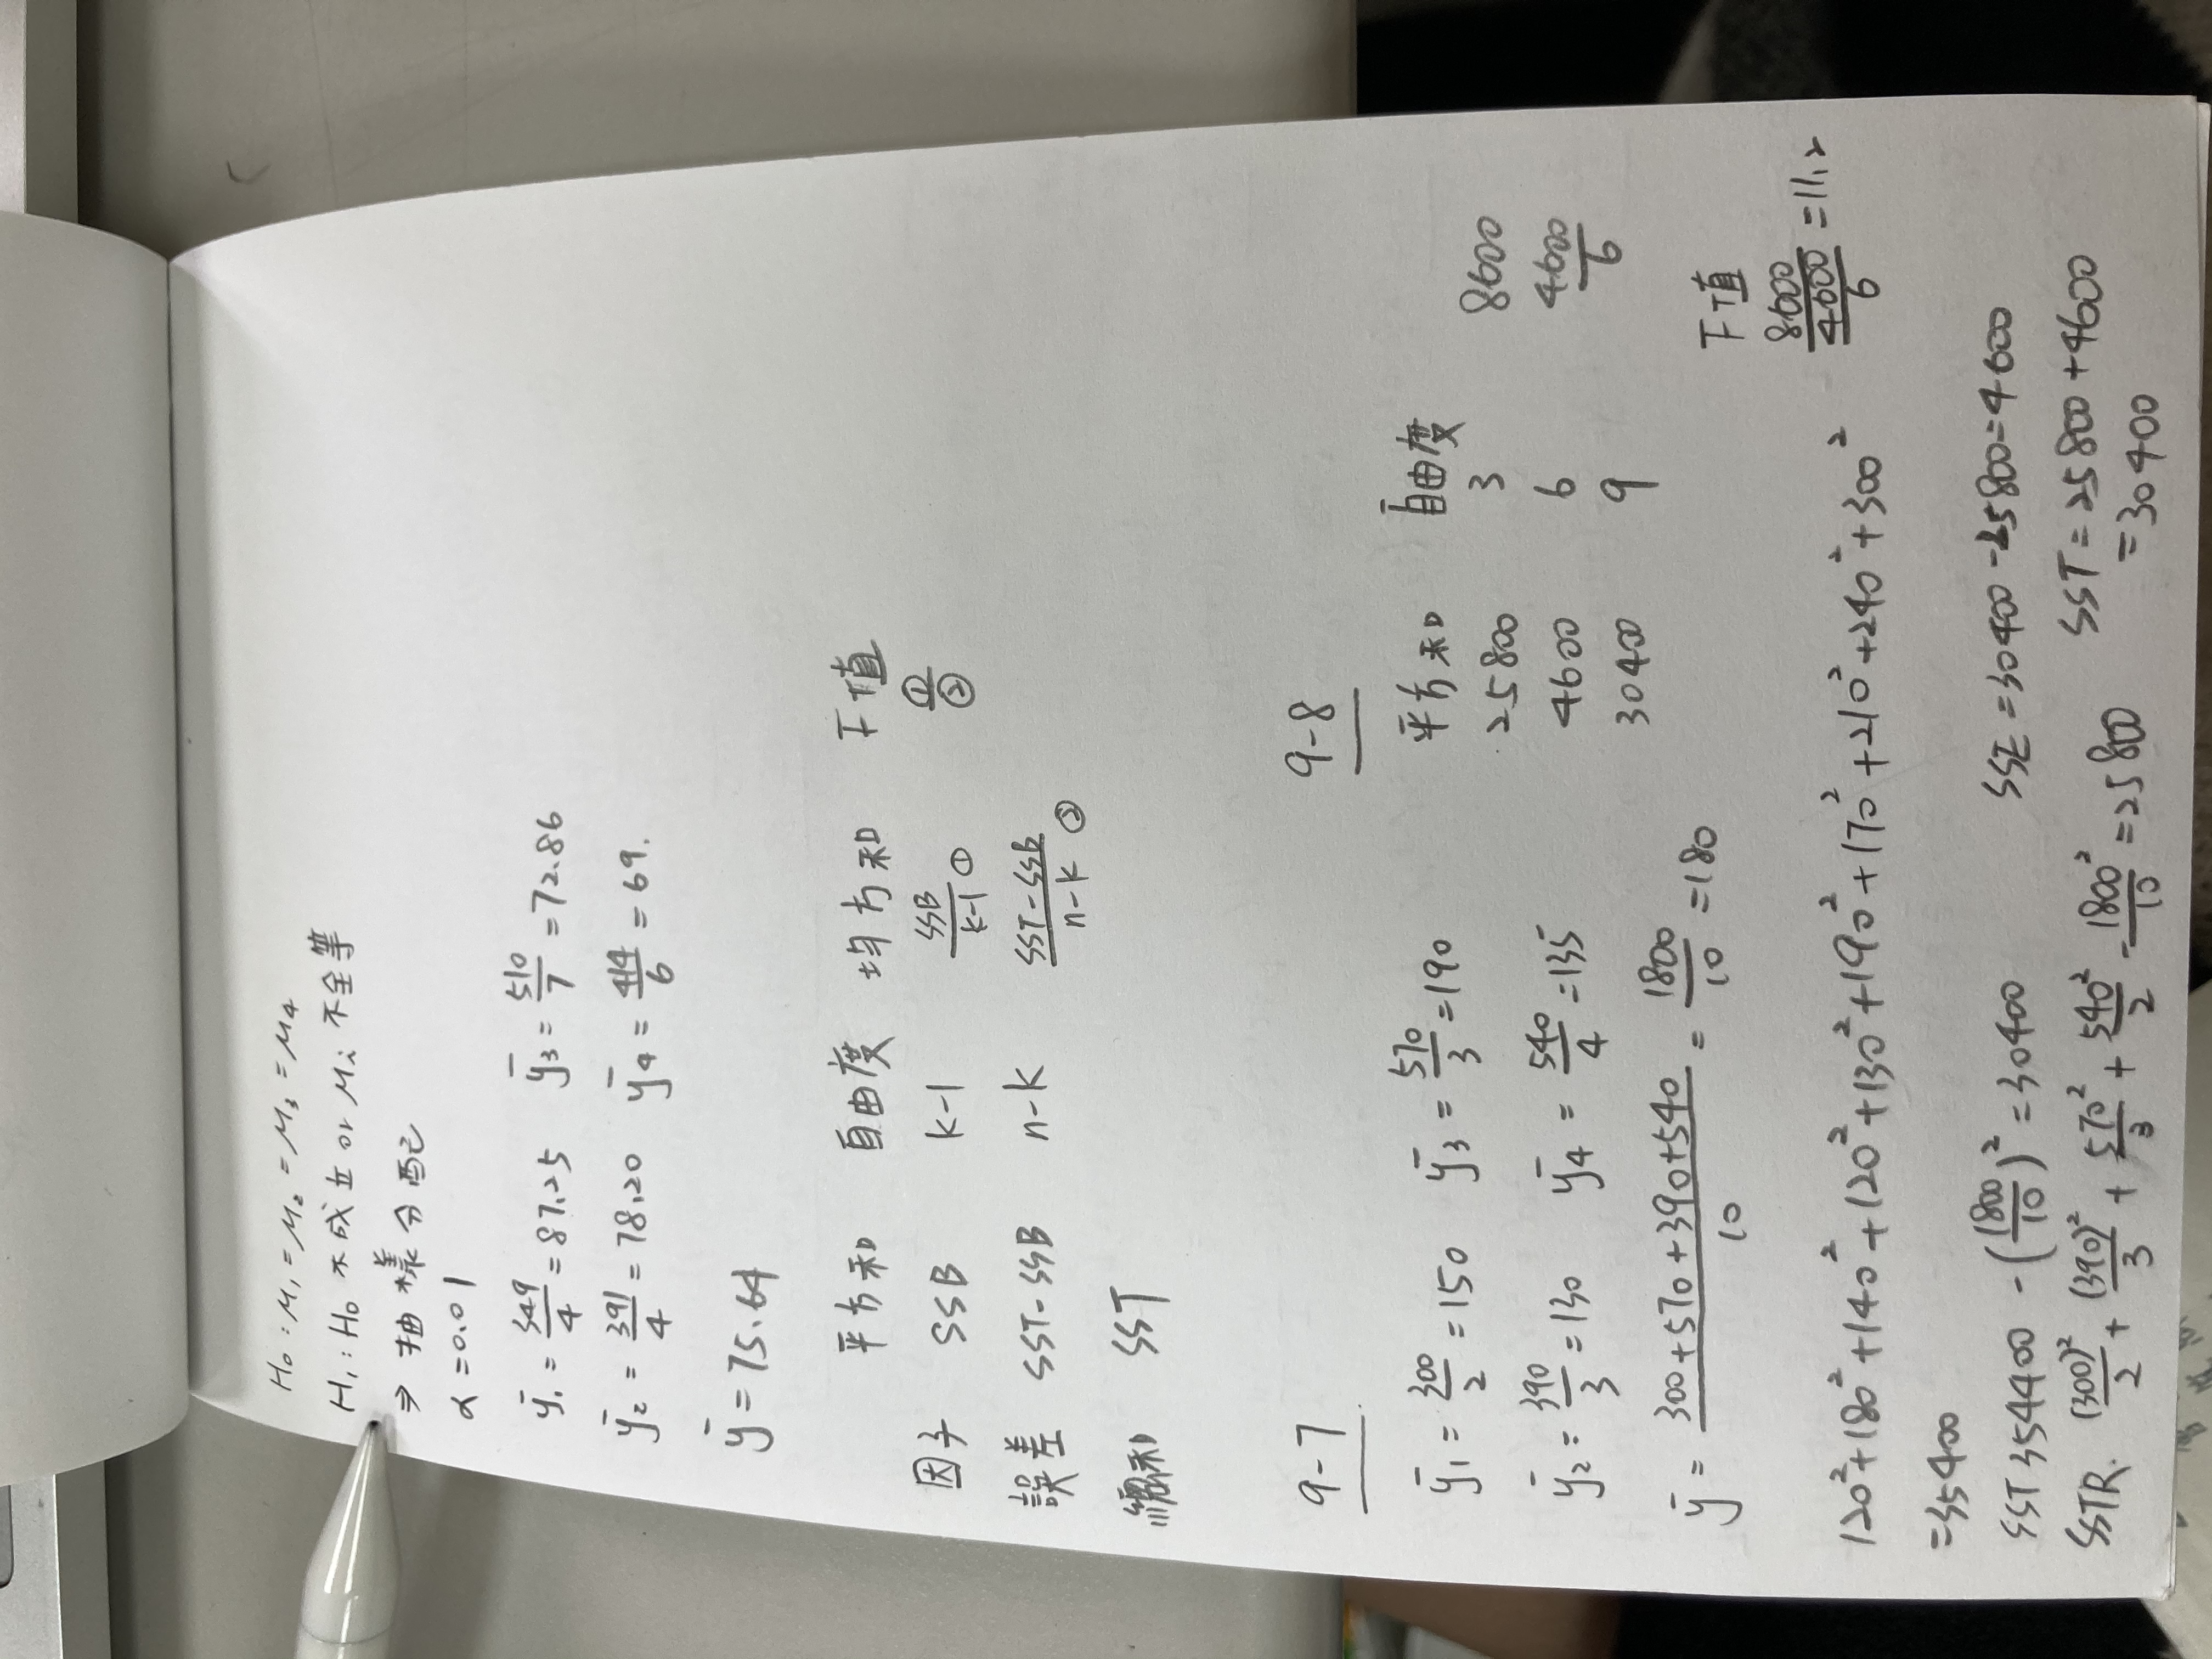 H₀ : μ₁ = μ₂ = μ₃ = μ₄
H₁ : H₀ 不成立 or μi 不全等
⇒ 抽樣分配
α = 0.01
ȳ₁ = 349/4 = 87.25 ȳ₃ = 510/7 = 72.86
ȳ₂ = 391/4 = 78.20 ȳ₄ = 414/6 = 69.
ȳ = 75.64
平方和 自由度 均方和 F值
因子 SSB k-1 SSB/k-1 ① ①/②
誤差 SST-SSB n-k SST-SSB/n-k ②
總和 SST
9-7
ȳ₁ = 300/2 = 150 ȳ₃ = 570/3 = 190
ȳ₂ = 390/3 = 130 ȳ₄ = 540/4 = 135
ȳ = 300+570+390+540/10 = 1800/10 = 180
120²+180²+140²+120²+130²+190²+170²+210²+240²+300²
=35400
SST 354400 - (1800/10)² = 30400
SSTR. (300)²/2 + (390)²/3 + 570²/3 + 540²/2 - 1800²/10 = 25800
9-8
平方和 自由度
25800 3 8600
4600 6 4600/6
30400 9
F值
8600/4600/6 = 11.2
SSE = 30400 - 25800 = 4600
SST = 25800 + 4600
= 30400